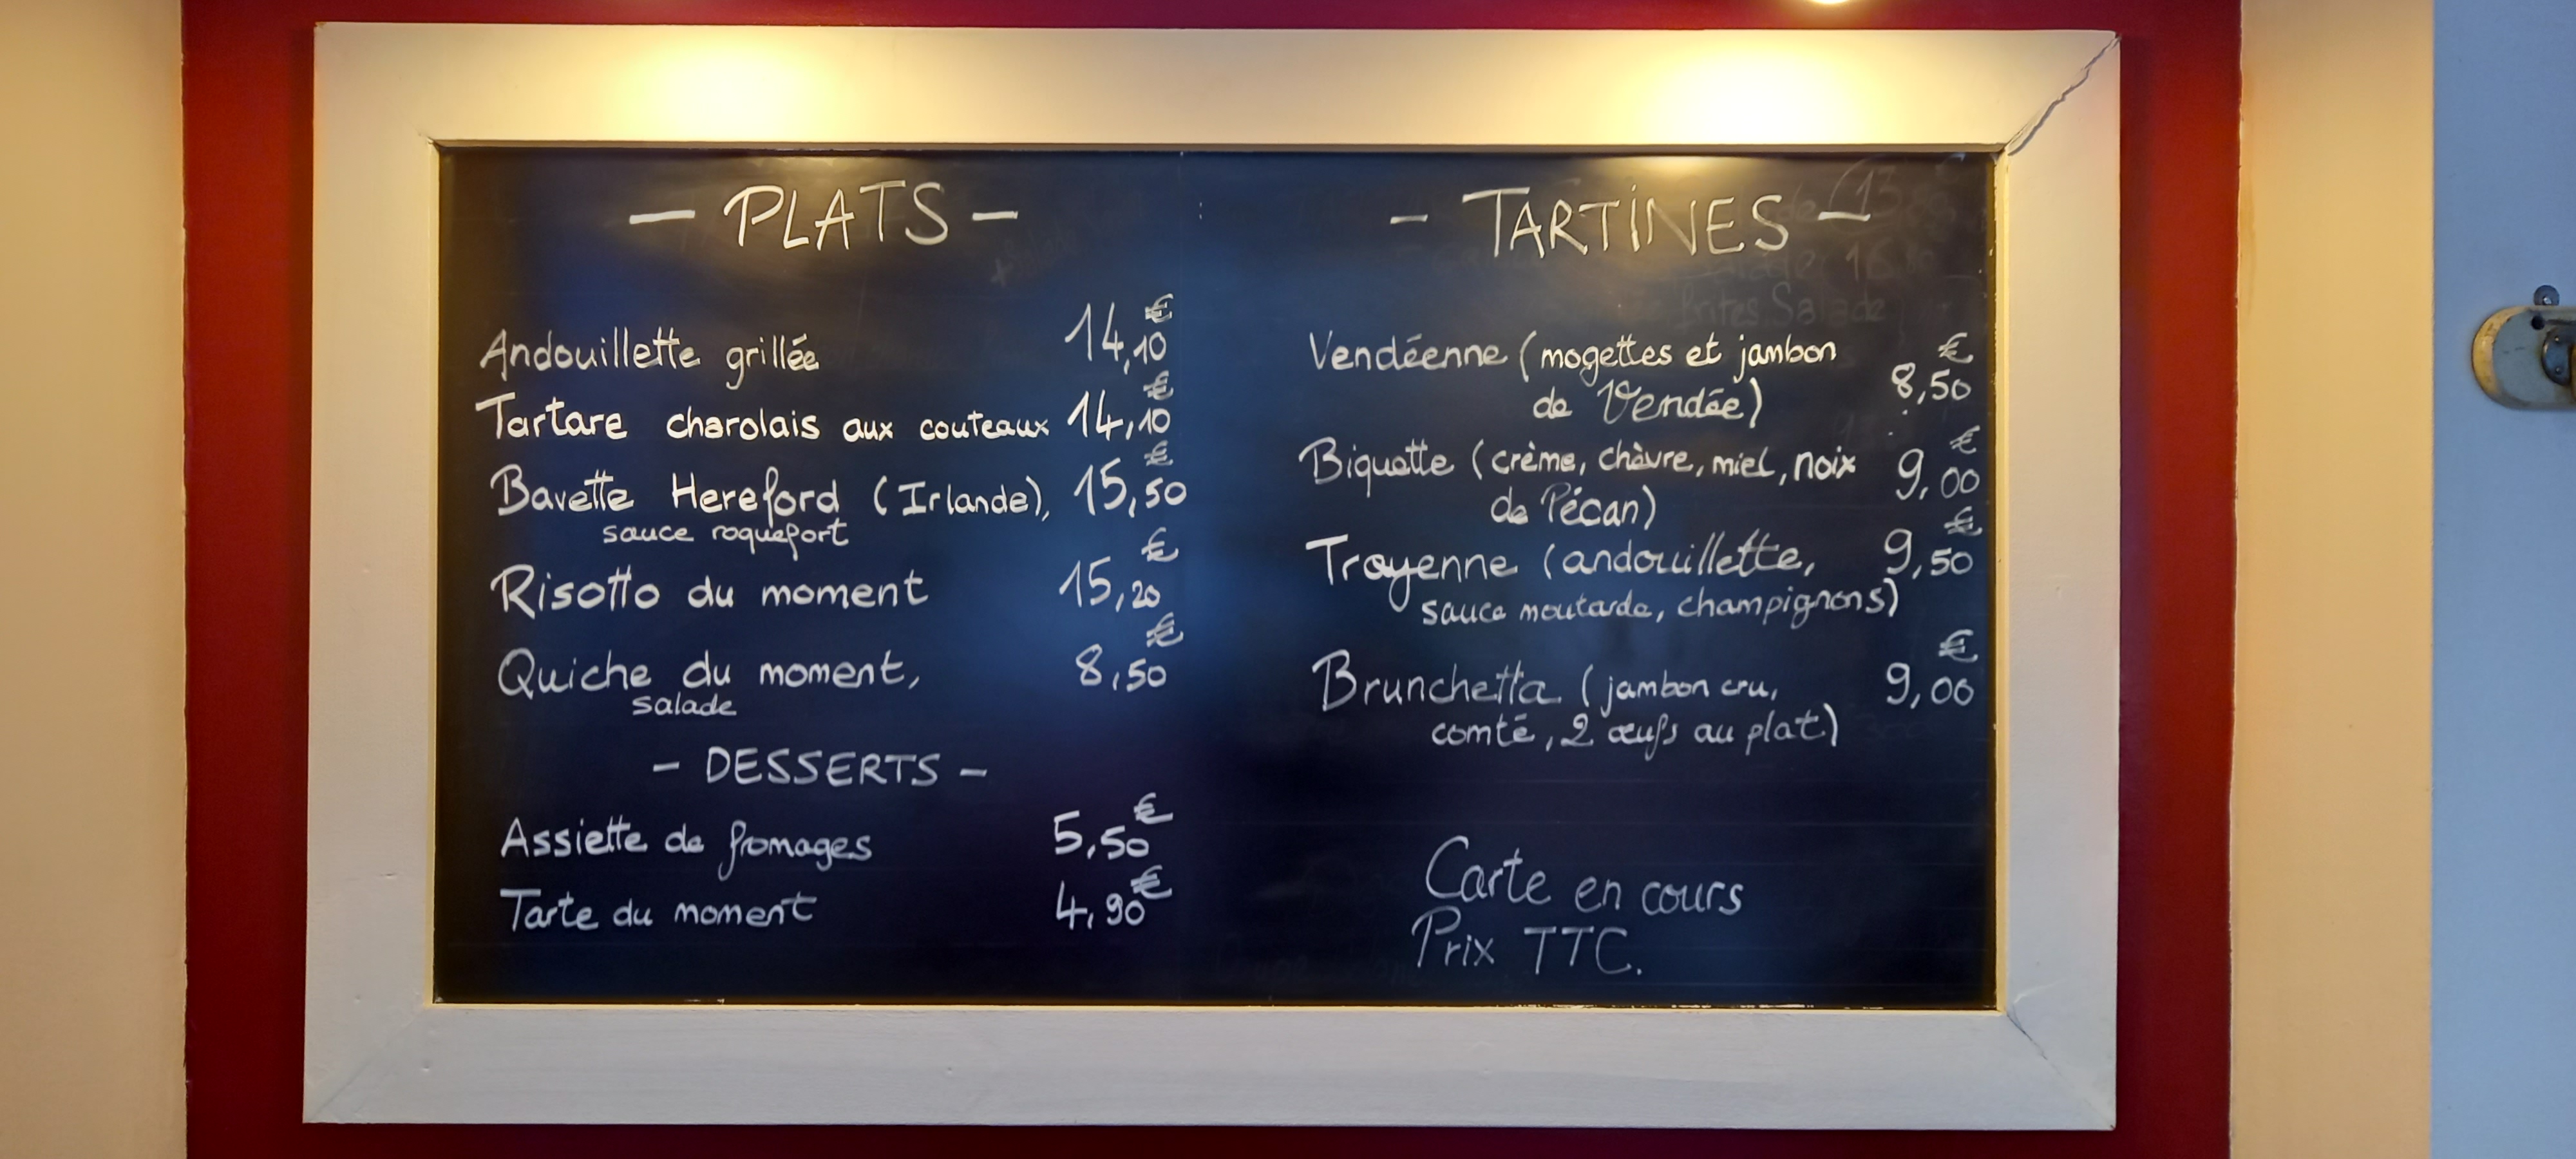 - PLATS -
Andouillette grillée 14,10€
Tartare charolais aux couteaux 14,10€
Bavette Hereford (Irlande), 15,50€
sauce roquefort
Risotto du moment 15,20€
Quiche du moment, 8,50€
salade
- DESSERTS -
Assiette de fromages 5,50€
Tarte du moment 4,90€
- TARTINES -
Vendéenne (mogettes et jambon
de Vendée) 8,50€
Biquette (crème, chèvre, miel, noix 9,00€
de Pécan)
Troyenne (andouillette, 9,50€
sauce moutarde, champignons)
Brunchetta (jambon cru, 9,00€
comté, 2 œufs au plat)
Carte en cours
Prix TTC.